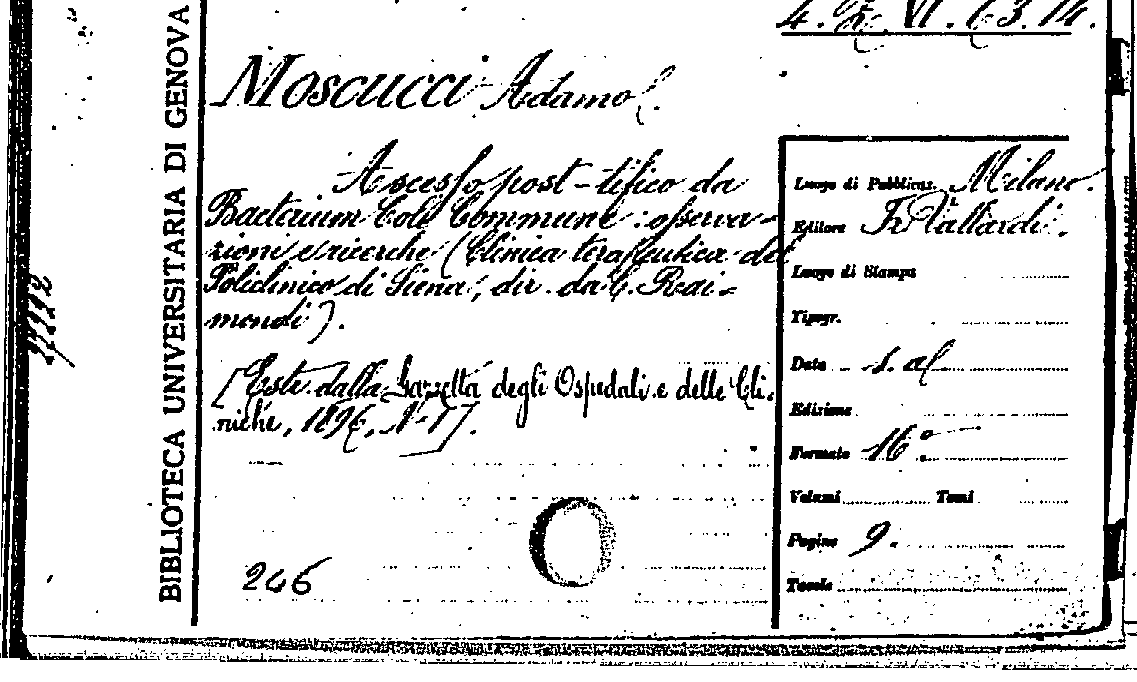 4. VI. 63. 14.
BIBLIOTECA UNIVERSITARIA DI GENOVA
Moscucci Adamo.
Ascesso post-tifico da
Bacterium Coli Commune: osserva-
zioni e ricerche (Clinica terapeutica del
Policlinico di Siena, dir. da C. Rai-
mondi).
[Estr. dalla Gazzetta degli Ospedali e delle Cli-
niche, 1896, N. 17].
246
Luogo di Pubblicaz. Milano.
Editore Fr. Vallardi.
Luogo di Stampa
Tipogr.
Data s. a.
Edizione
Formato 16º
Volumi Tomi
Pagine 9.
Tavole